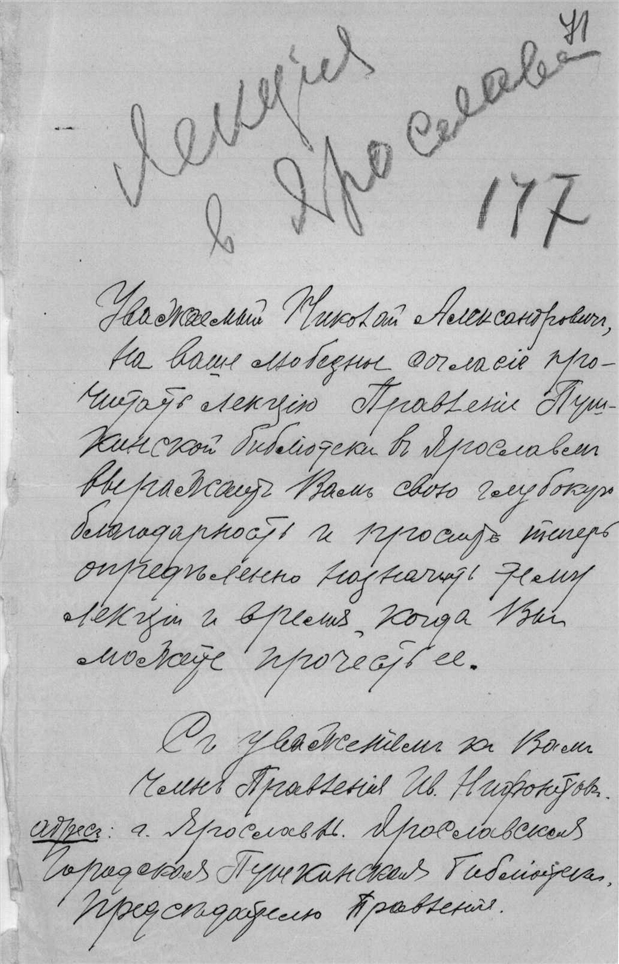 71
Лекція
в Ярославле
177
Уважаемый Николай Александрович,
на ваше любезное согласіе про-
читать лекцію Правленіе Пуш-
кинской библіотеки въ Ярославлѣ
выражаетъ Вамъ свою глубокую
благодарность и проситъ теперь
опредѣленно назначить тему
лекціи и время, когда Вы
можете прочесть ее.
Съ уваженіемъ къ Вамъ
Членъ Правленія Ив. Нифонтовъ.
адресъ: г. Ярославль. Ярославская
Городская Пушкинская библіотека,
Предсѣдателю Правленія.